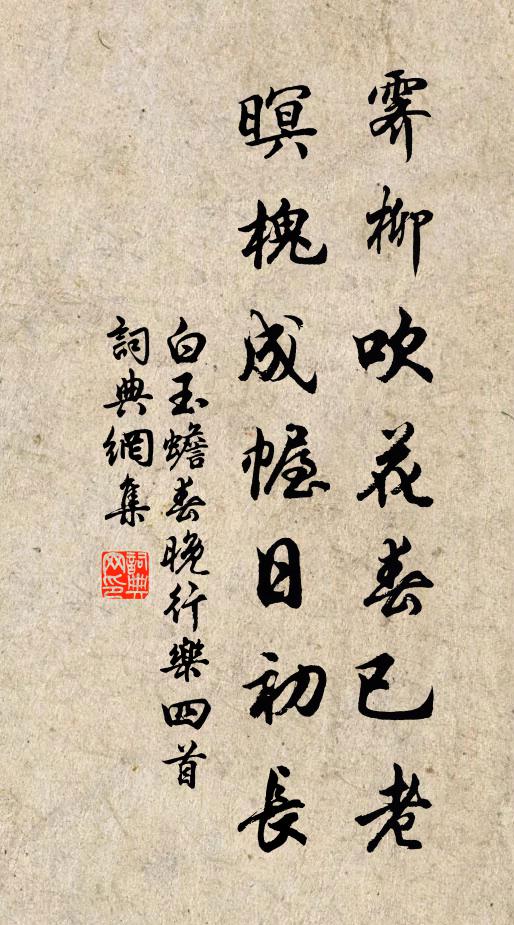 霽柳吹花春已老
暝槐成幄日初長
白玉蟾春晚行樂四首
詞典網集
詞典網印